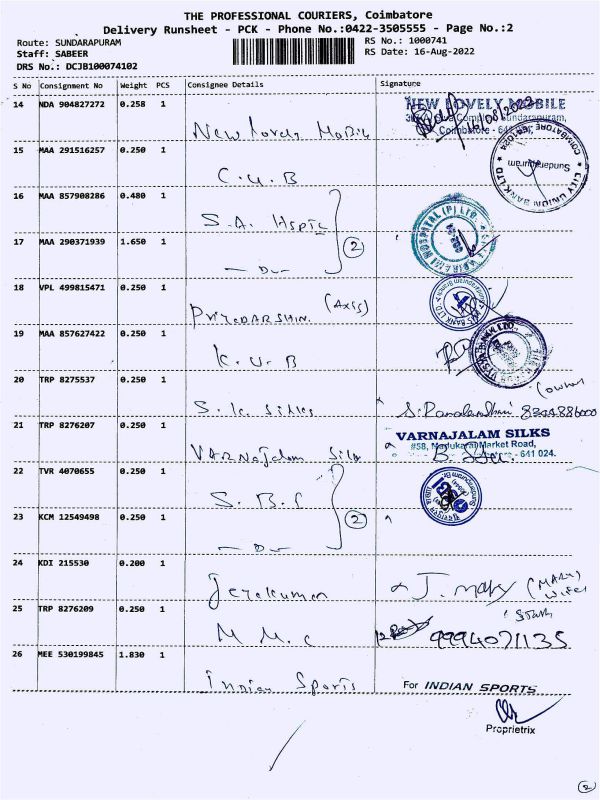 THE PROFESSIONAL COURIERS, Coimbatore
Delivery Runsheet - PCK - Phone No.:0422-3505555 - Page No.:2
Route: SUNDARAPURAM RS No.: 1000741
Staff: SABEER RS Date: 16-Aug-2022
DRS No.: DCJB100074102
S No Consignment No Weight PCS Consignee Details Signature
14 NDA 904827272 0.258 1
NEW LOVELY MOBILE
New Lovely Mobile
15 MAA 291516257 0.250 1
C.U.B
CITY UNION BANK LTD
Sundarapuram
16 MAA 857908286 0.480 1
S.A. Hspital
17 MAA 290371939 1.650 1
2
- Do -
18 VPL 499815471 0.250 1
(Axis)
PriyaDARSHINI
19 MAA 857627422 0.250 1
K.U.B
20 TRP 8275537 0.250 1
S.K. Silks
8344886000
21 TRP 8276207 0.250 1
VARNAJALAM SILKS
#58, Madukarai Market Road,
- 641 024.
VARNAJalam Silk
22 TVR 4070655 0.250 1
S.B.I
23 KCM 12549498 0.250 1
2
- Do -
24 KDI 215530 0.200 1
Jeyakumar
J. mary (MARY)
Wife
25 TRP 8276209 0.250 1
M M.C
9994071135
26 MEE 530199845 1.830 1
Indian Sports
For INDIAN SPORTS
Proprietrix
2